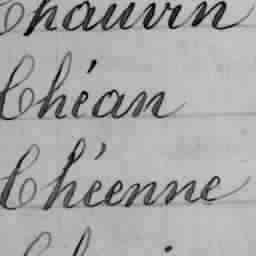 Chauvin
Chéan
Chéenne